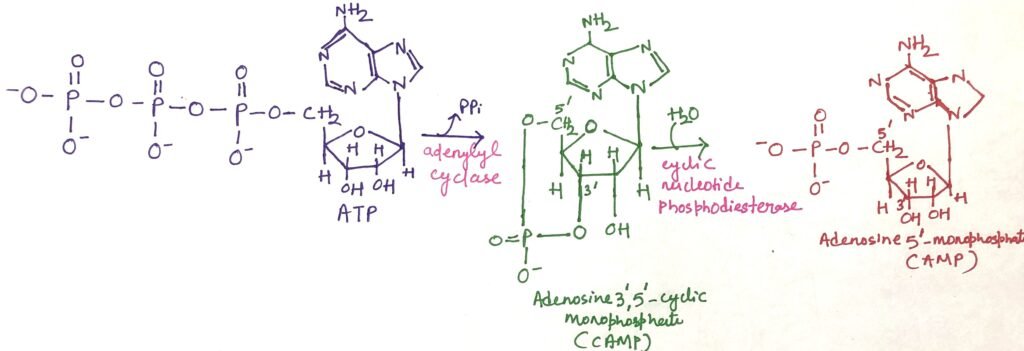 NH₂
N N
N N
O O O
⁻O–P–O–P–O–P–O–CH₂
O⁻ O⁻ O⁻
O
H H H H
OH OH
ATP
PPi
adenylyl
cyclase
NH₂
N N
N N
5'
O–CH₂
O
H H
H 3' H
O=P–O OH
O⁻
Adenosine 3',5'-cyclic
monophosphate
(CAMP)
H₂O
cyclic
nucleotide
phosphodiesterase
NH₂
N N
N N
O 5'
⁻O–P–O–CH₂
O⁻ O
H H
H 3' H
OH OH
Adenosine 5'-monophosphate
(AMP)